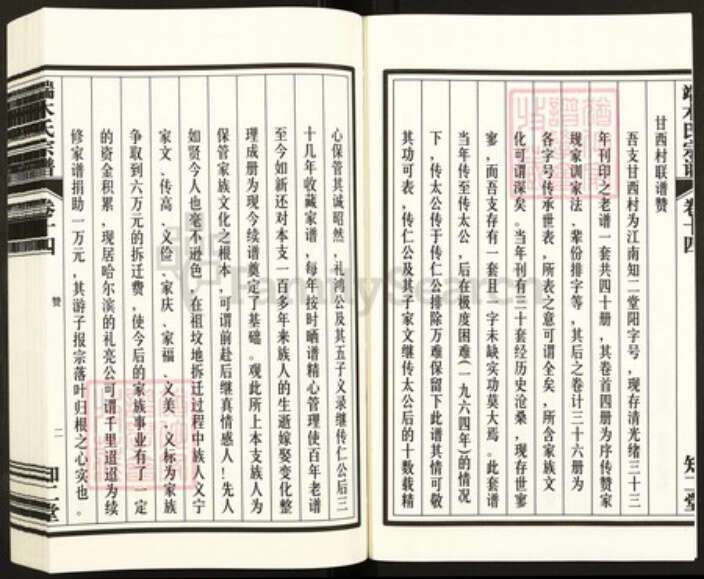 端木氏宗谱
卷十四
知二堂
甘西村联谱赞
吾支甘西村为江南知二堂阳字号，现存清光绪三十三
年刊印之老谱一套共四十册，其卷首四册为序传赞家
规家训家法、辈份排字等，其后之卷计三十六册为
各字号传承世表，所表之意可谓全矣，所含家族文
化可谓深矣。当年刊有三十套经历史沧桑，现存世寥
寥，而吾支存有一套且一字未缺实功莫大焉。此套谱
当年传至传太公，后在极度困难(一九六四年)的情况
下，传太公传于传仁公排除万难保留下此谱其情可敬
其功可表，传仁公及其子家文继传太公后的十数载精
心保管其诚昭然，礼鸿公及其五子义录继传仁公后三
十几年收藏家谱，每年按时晒谱精心管理使百年老谱
至今如新还对本支一百多年来族人的生逝嫁娶变化整
理成册为现今续谱奠定了基础。观此所上本支族人为
保管家族文化之根本，可谓前赴后继真情感人！先人
如贤今人也毫不逊色，在祖坟地拆迁过程中族人义宁
家文、传高、义俭、家庆、家福、义美、义标为家族
争取到六万元的拆迁费，使今后的家族事业有了一定
的资金积累，现居哈尔滨的礼亮公可谓千里迢迢为续
修家谱捐助一万元，其游子报宗落叶归根之心实也。
端木氏宗谱
卷十四
赞
二
知二堂
FamilySearch